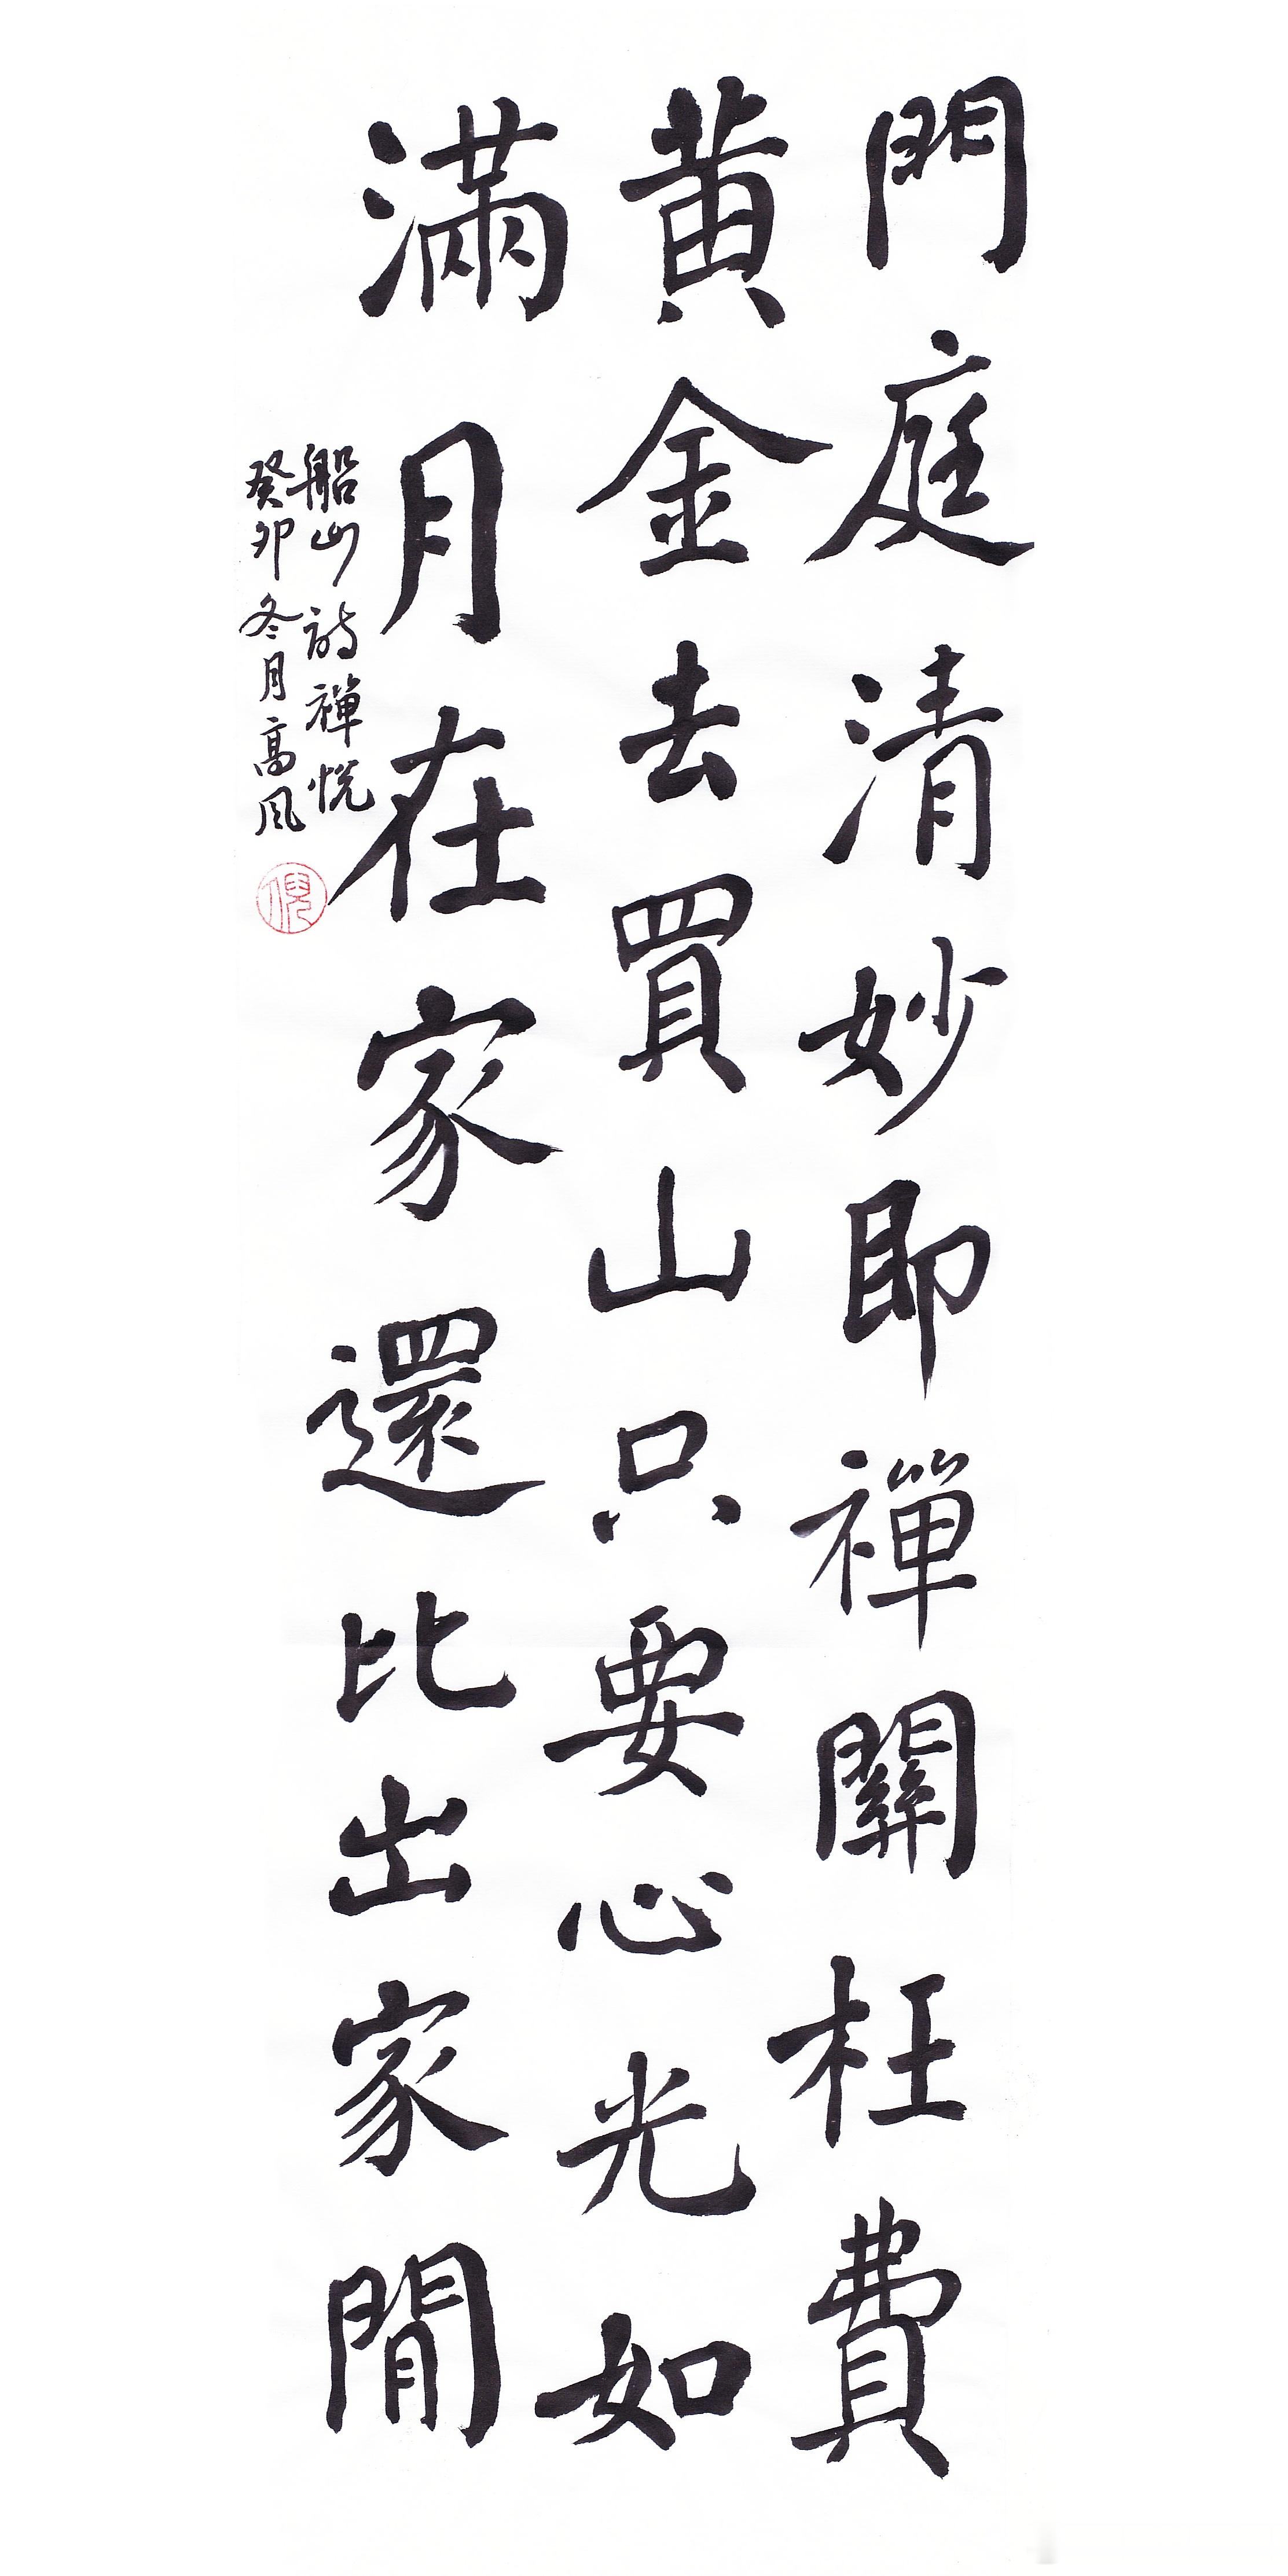 門庭清妙即禪關枉費
黃金去買山只要心光如
滿月在家還比出家閒
船山詩禪悅
癸卯冬月高风
倪